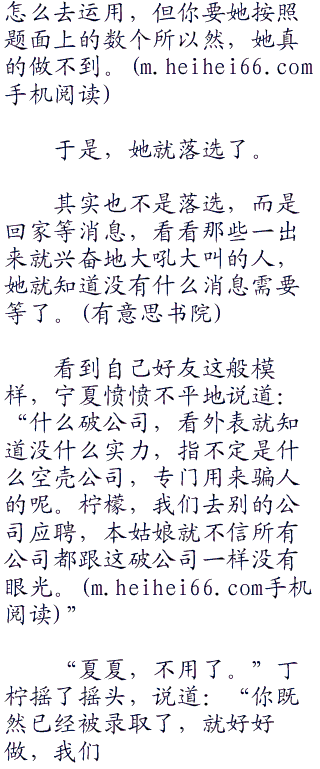 怎么去运用，但你要她按照
题面上的数个所以然，她真
的做不到。(m.heihei66.com
手机阅读)
于是，她就落选了。
其实也不是落选，而是
回家等消息，看看那些一出
来就兴奋地大吼大叫的人，
她就知道没有什么消息需要
等了。(有意思书院)
看到自己好友这般模
样，宁夏愤愤不平地说道：
“什么破公司，看外表就知
道没什么实力，指不定是什
么空壳公司，专门用来骗人
的呢。柠檬，我们去别的公
司应聘，本姑娘就不信所有
公司都跟这破公司一样没有
眼光。(m.heihei66.com手机
阅读)”
“夏夏，不用了。”丁
柠摇了摇头，说道：“你既
然已经被录取了，就好好
做，我们